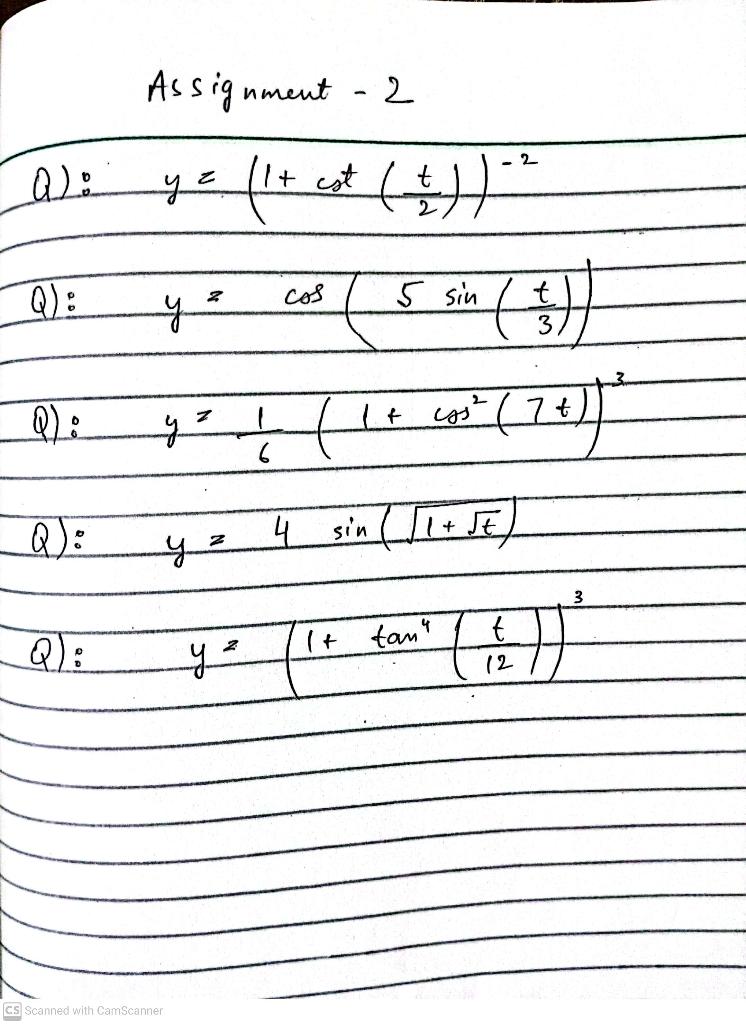 Assignment - 2
Q): y = (1 + cot (t/2))^-2
Q): y = cos (5 sin (t/3))
Q): y = 1/6 (1 + cos² (7t))³
Q): y = 4 sin (√(1 + √t))
Q): y = (1 + tan⁴ (t/12))³
CS Scanned with CamScanner